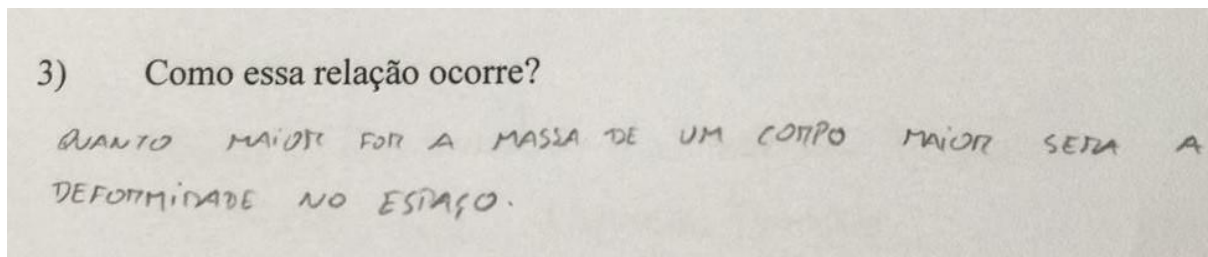 3) Como essa relação ocorre?
QUANTO MAIOR FOR A MASSA DE UM CORPO MAIOR SERA A
DEFORMIDADE NO ESPAÇO.